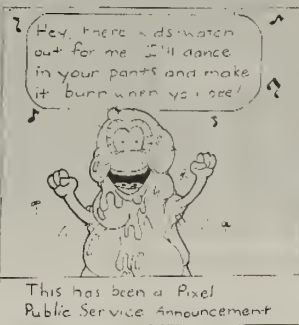 Hey, there kids watch
out for me I'll dance
in your pants and make
it burr when you pee!
This has been a Pixel
Public Service Announcement